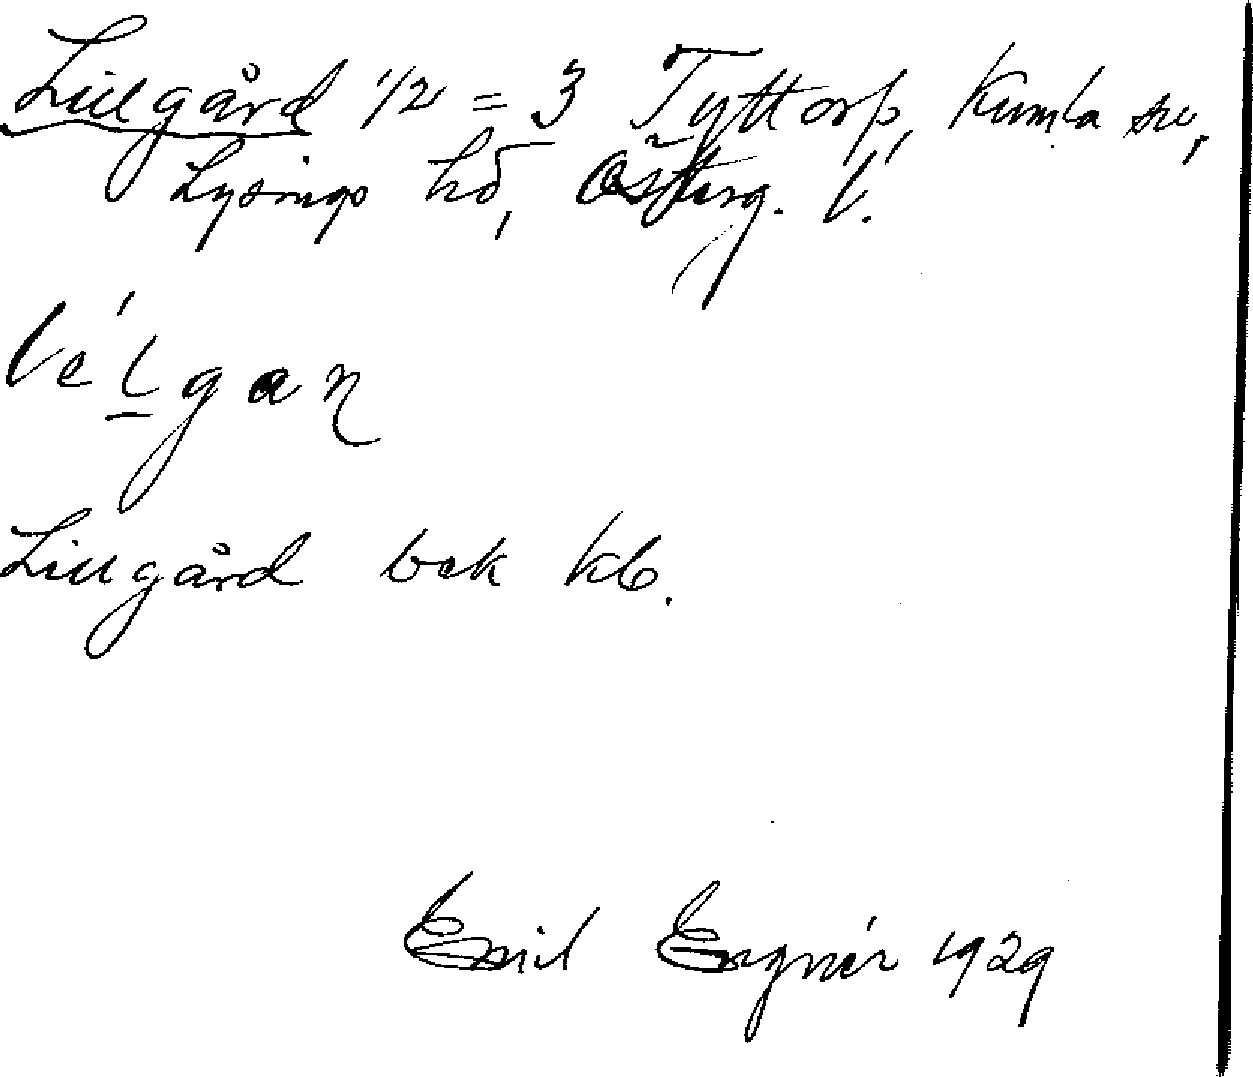 Lillgård 1/2 = 3 Tyttorp, Kumla sn,
Lysings hd, Österg. l.
Lillgård bek kb.
Emil Ergnér 1929